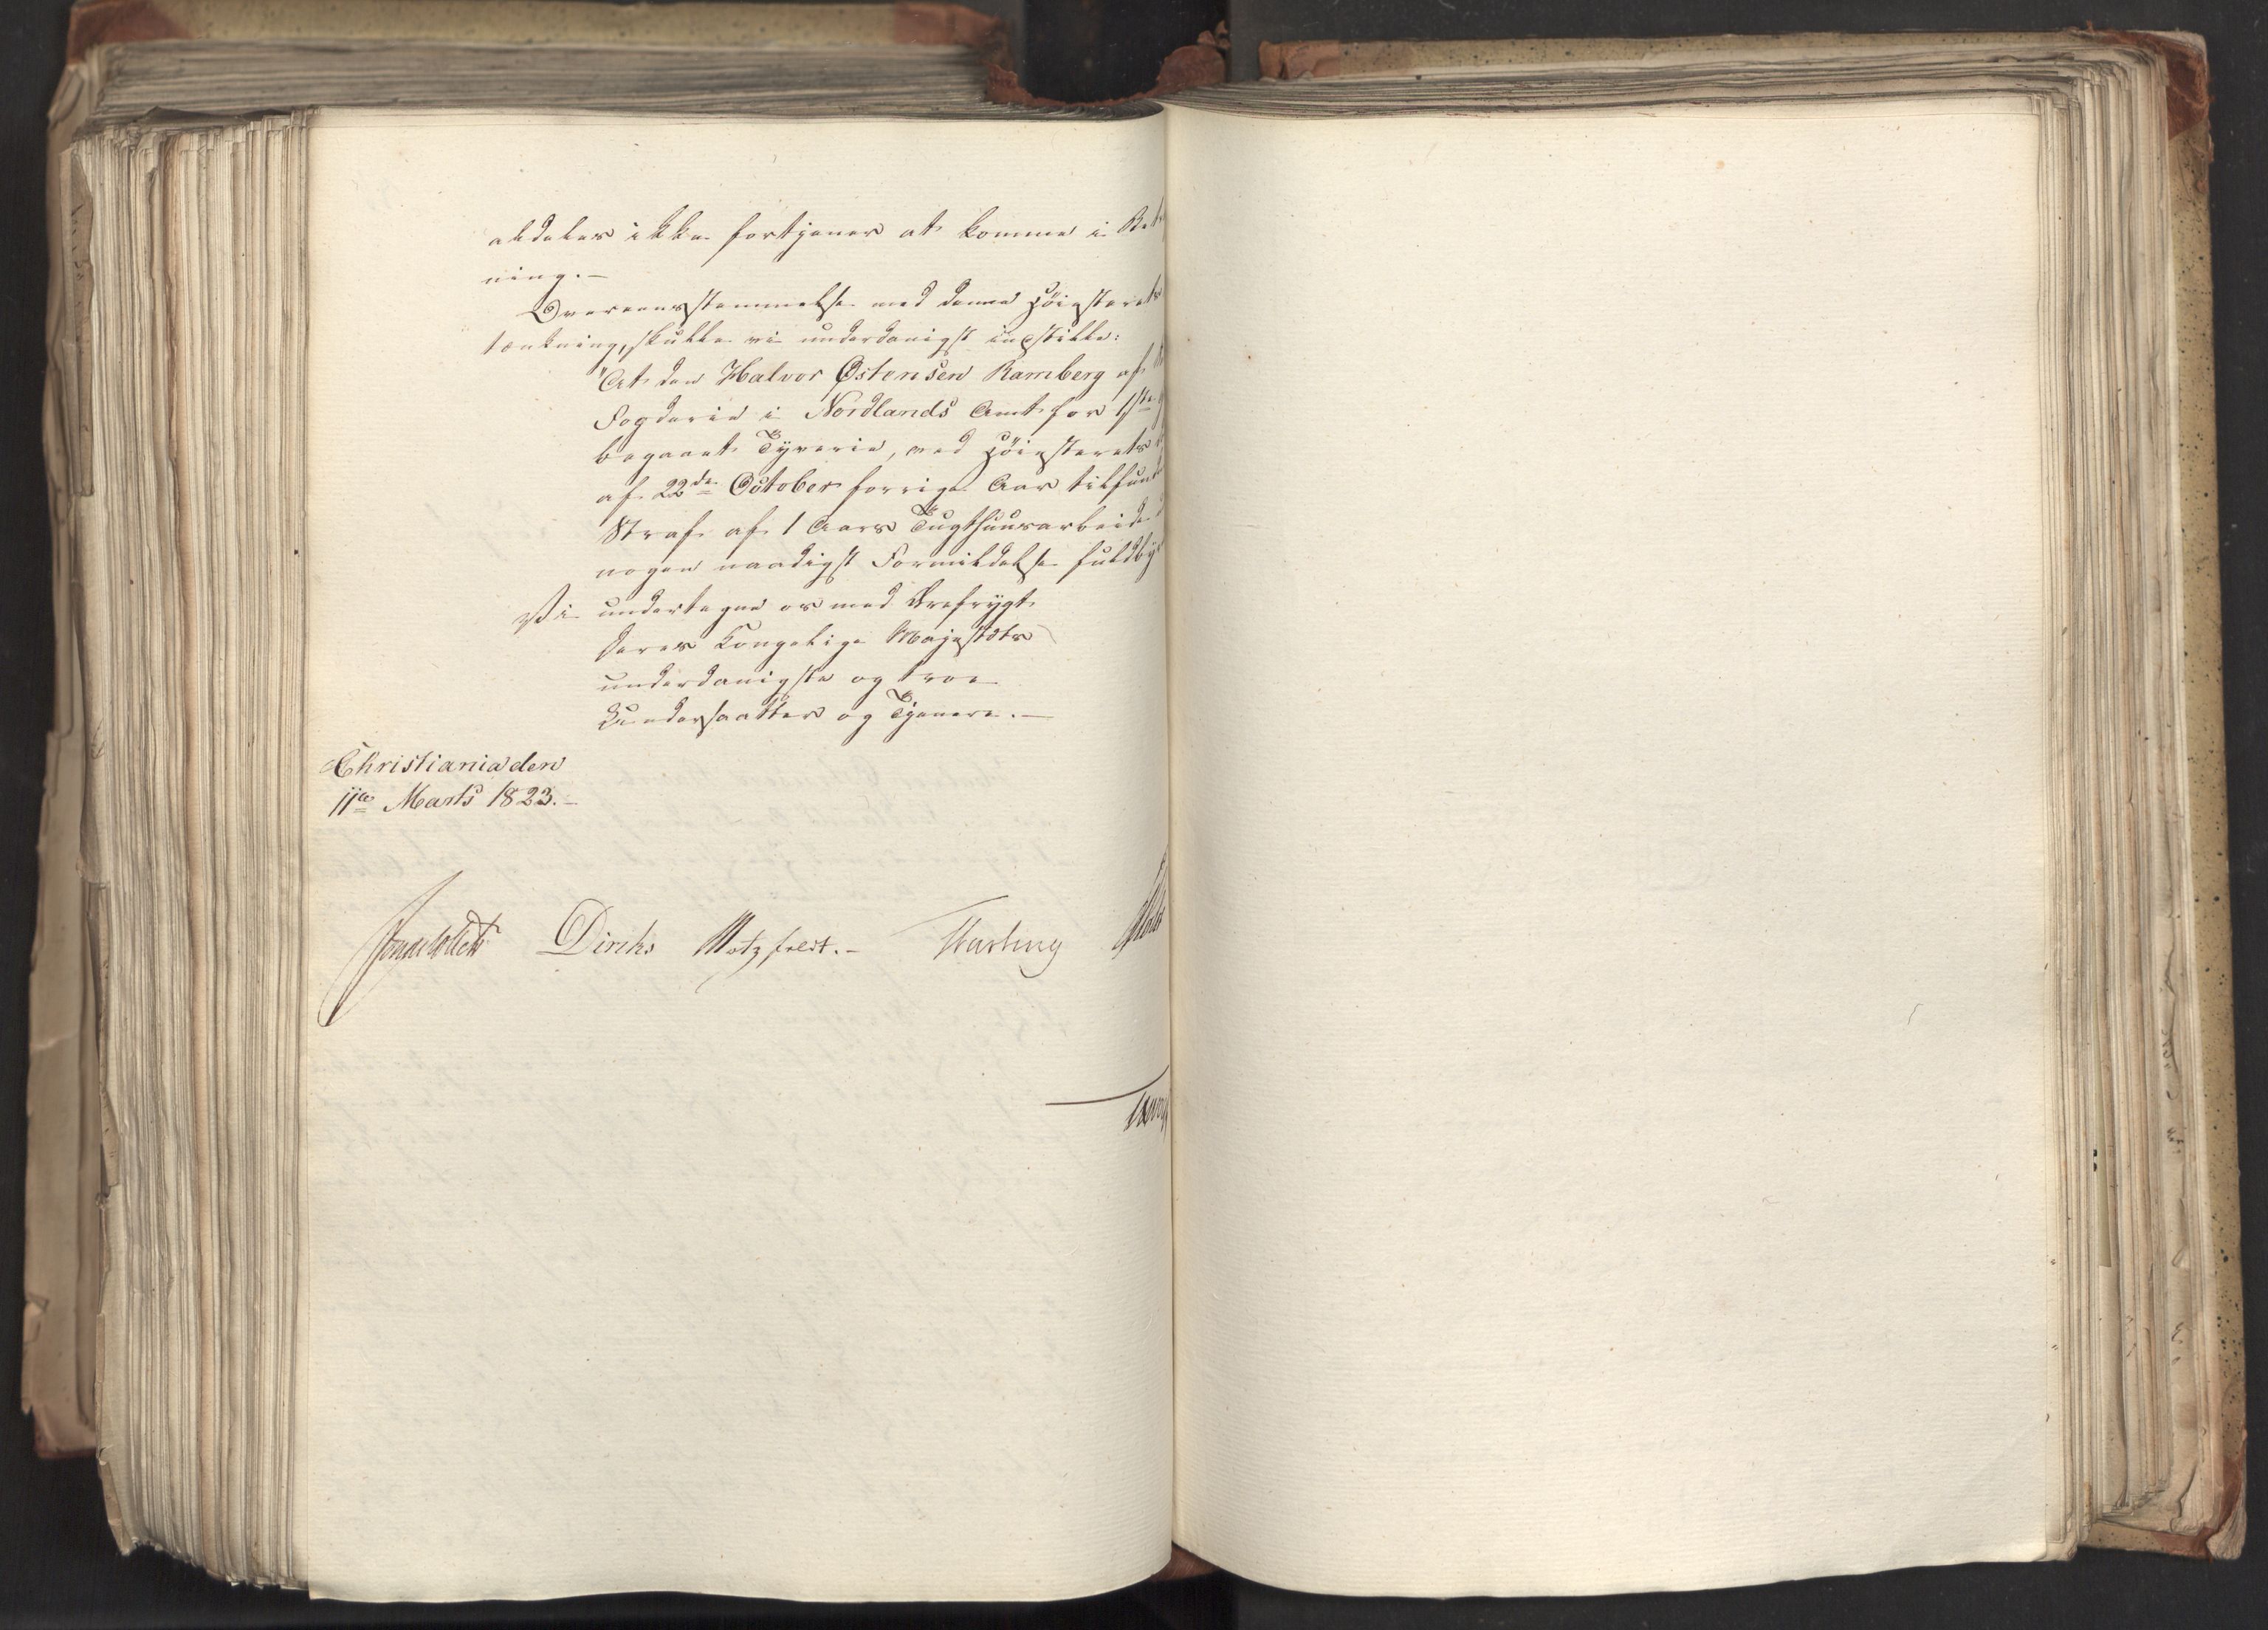 aldeles ikke fortjener at komme i Bet
ning. —
Overeensstemmelse med denne Høiesterets
tænkning, skulle vi underdanigst indstille:
"At den Halvor Østensen Ramberg af
Fogderie i Nordlands Amt for 1ste G
begaaet Tyverie, ved Høiesterets
af 22de October forrige Aar tilfund
Straf af 1 Aars Tugthuusarbeide
nogen naadigst Formildelse fuldby
Vi undertegne os med Ærefrygt
Deres Kongelige Majestæts
underdanigste og troe
Undersaatter og Tjenere. —
Christiania den
11te Marts 1823. —
Jonas Collett Diriks Motzfeldt. — Fasting Holst